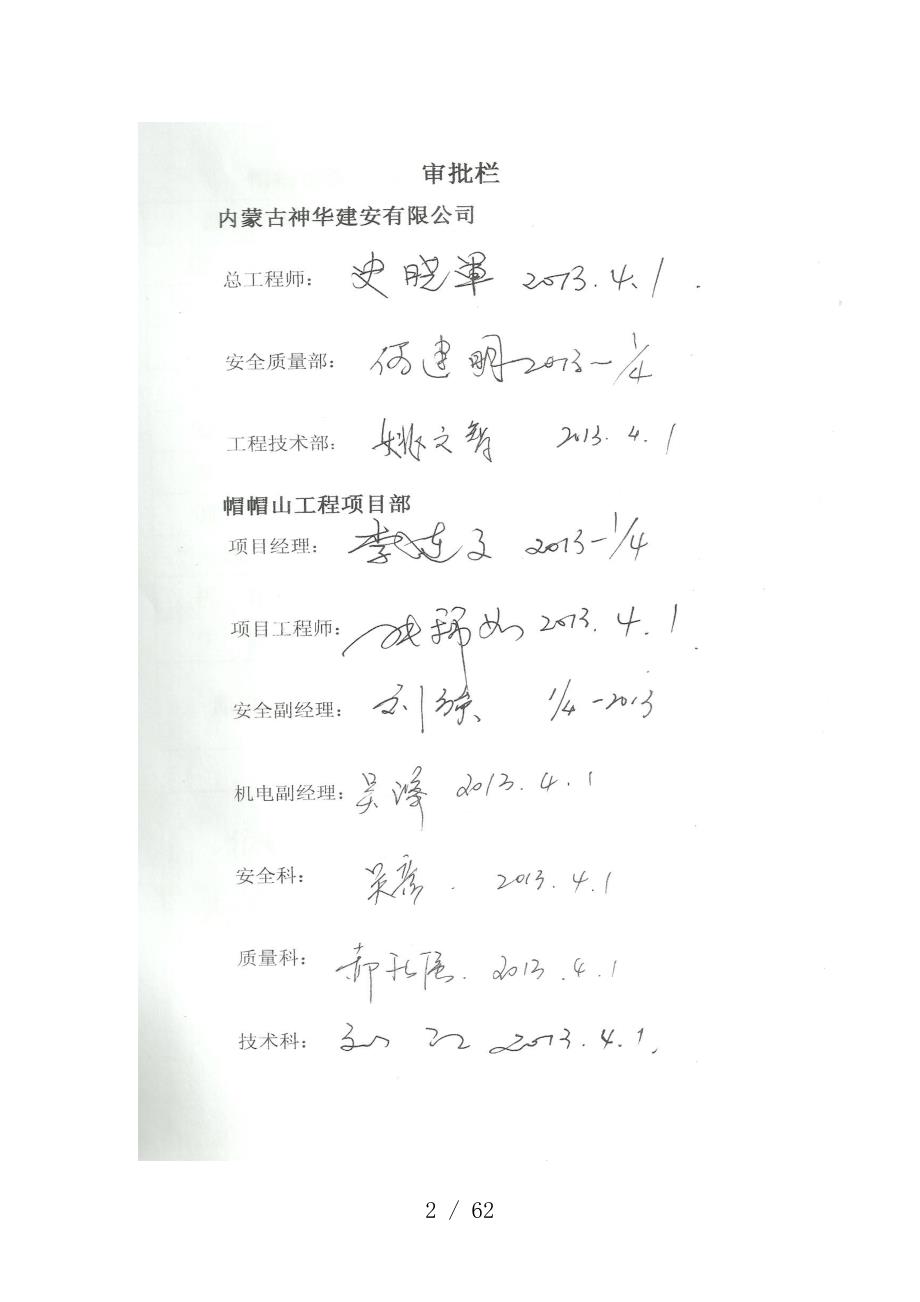 审批栏
内蒙古神华建安有限公司
总工程师： 史晓军 2013.4.1
安全质量部： 何建明 2013-1/4
工程技术部： 姚文智 2013.4.1
帽帽山工程项目部
项目经理： 李连文 2013-1/4
项目工程师： 2013.4.1
安全副经理： 刘 1/4-2013
机电副经理： 吴 2013.4.1
安全科： 吴彦 2013.4.1
质量科： 郝 2013.4.1
技术科： 刘 2013.4.1
2 / 62